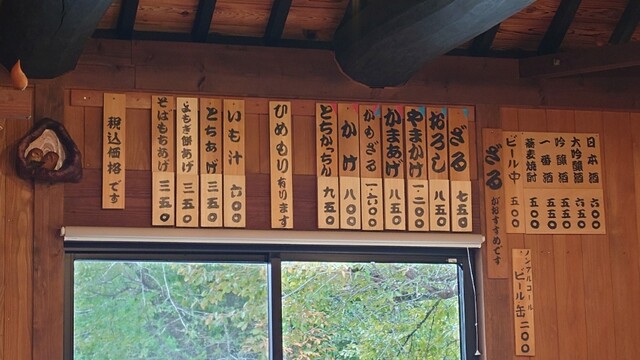 日本酒 六〇〇
大吟醸酒 六五〇
吟醸酒 五五〇
一番酒 五五〇
蕎麦焼酎 五五〇
ビール中
ノンアルコール
ビール缶
ざるがおすすめです
ざる 七五〇
おろし 八五〇
やまかけ
かまあげ 八五〇
かもざる 一六〇〇
かけ 八五〇
とちかっちん 九五〇
ひめもり有ります
いも汁 六〇〇
とちあげ 三五〇
よもぎ餅あげ 三五〇
そばもちあげ 三五〇
税込価格です